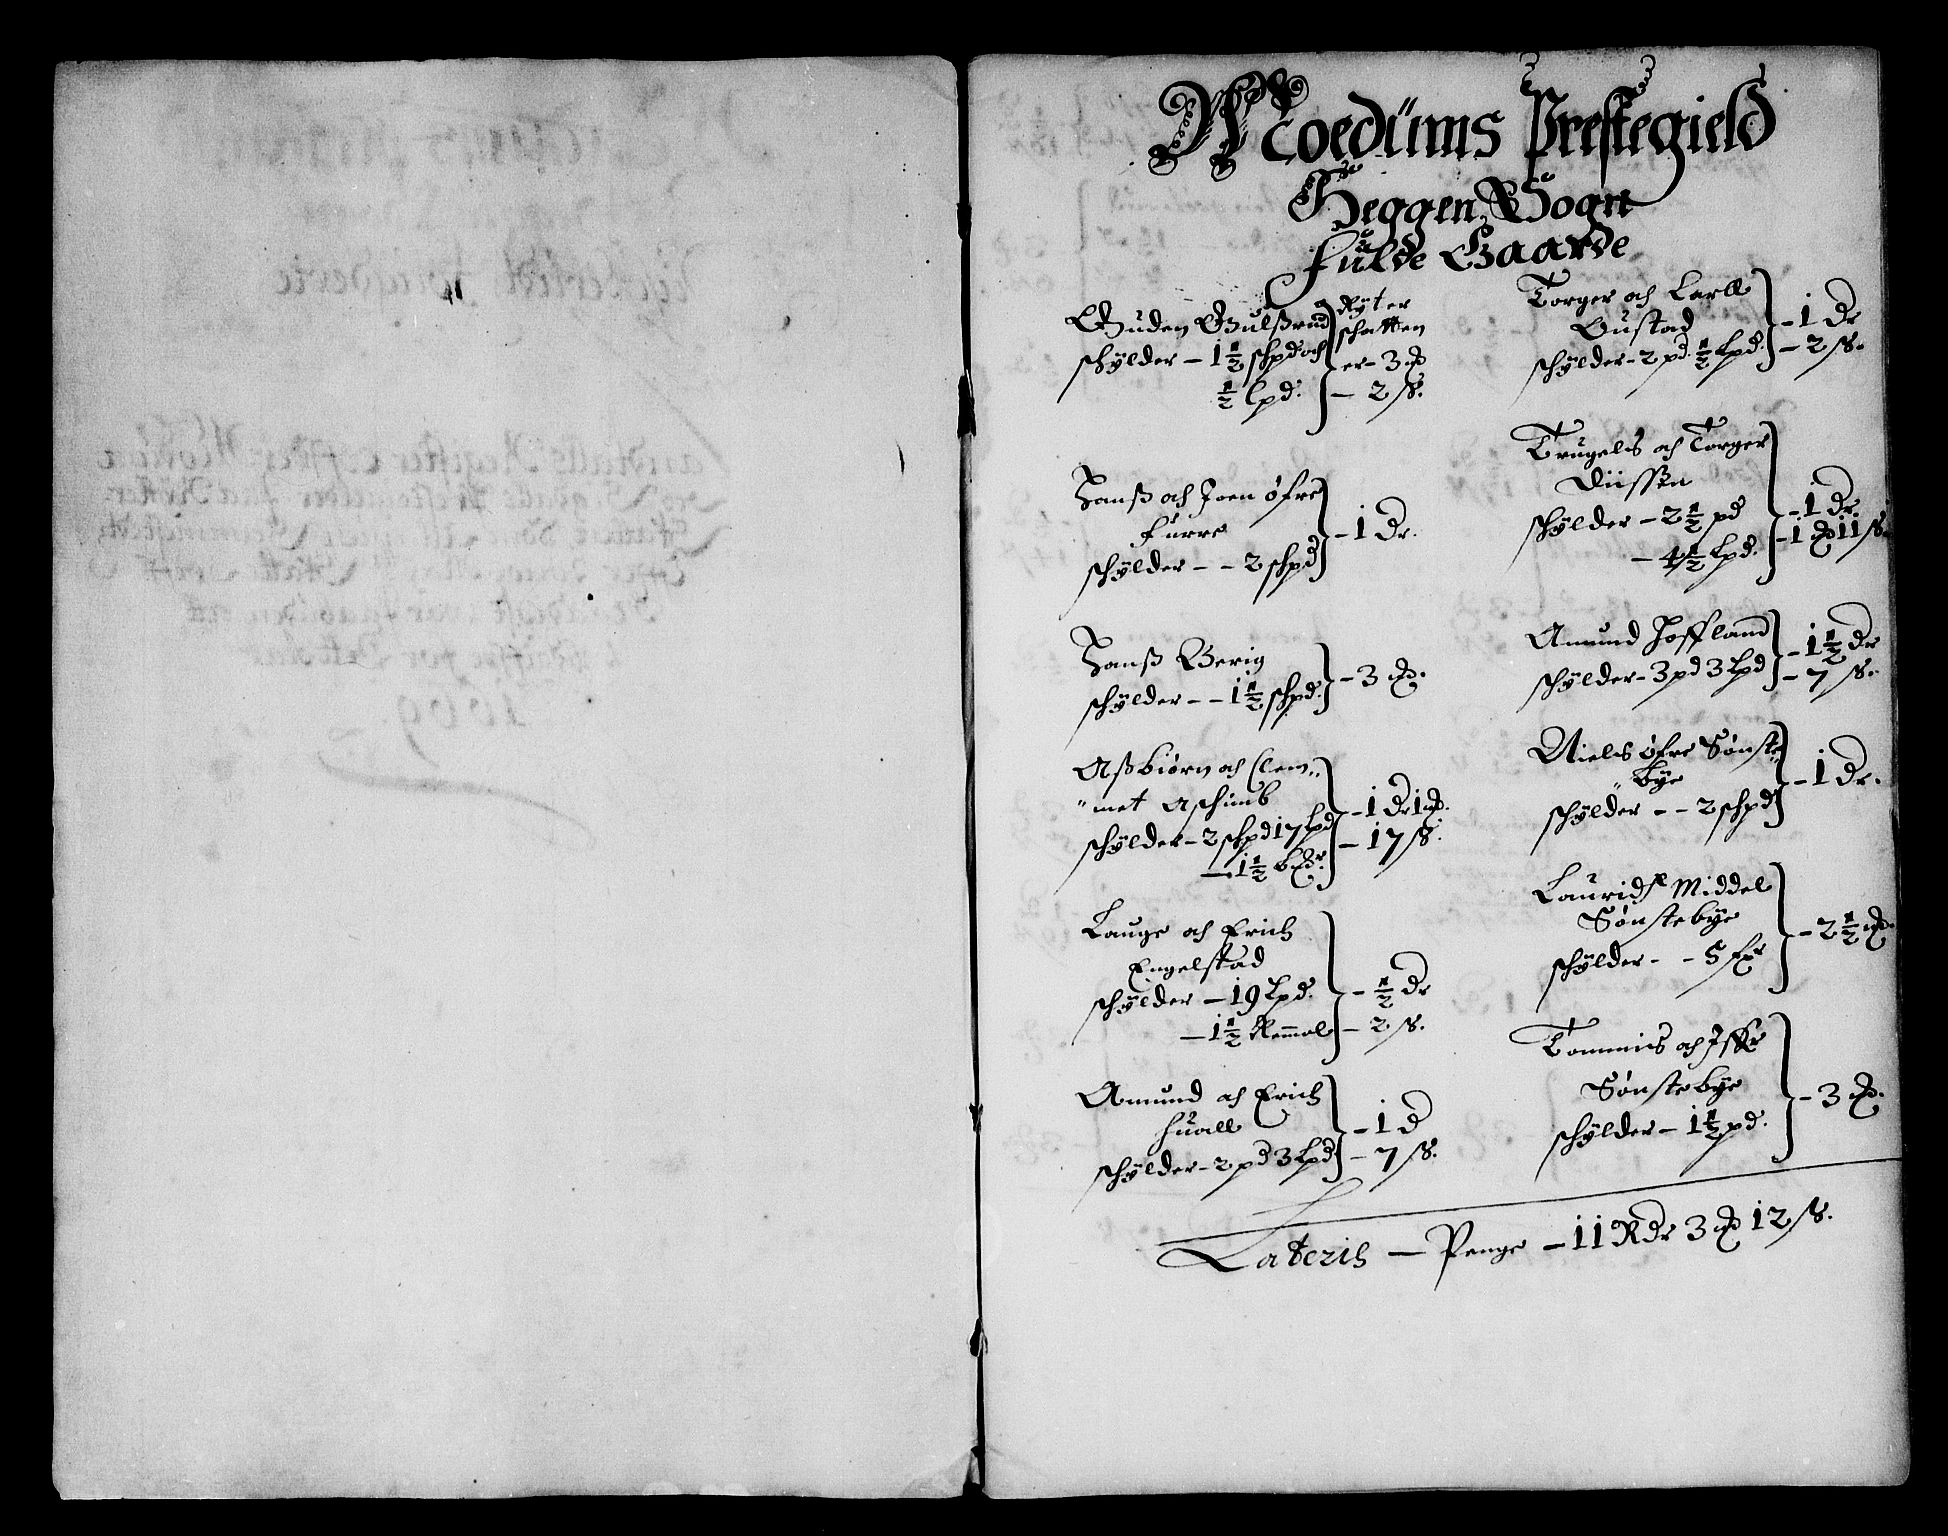 Moedúms Prestegield
Heggen Sogn
fúlde Gaarde
Guden Gúlßrud
schÿlder - 1 1/2 schpd och
1/2 lpd.
Rÿter
schatten
er - 3
- 2 s.
Hanß och Joen øfre
Furre
schÿlder - - 2 schpd
- 1 dr.
Hanß Berig
schÿlder - - 1 1/2 schpd.
- 3
Aßbiørn och Clem„
„met Aschimb
schÿlder - 2 schpd 17 lpd
- 1 1/2
- 1 dr 1
- 17 s.
Lauge och Erich
Engelstad
schÿlder - 19 Lpd.
- 1 1/2 Remol
- 1/2 dr
- 2 s.
Amund och Erich
huall
schÿlder - 2 pd 3 Lpd
- 1 d
- 7 s.
Torger och Larll
Gustad
schÿlder - 2 pd. 1/2 Lpd.
- 1 dr
- 2 s.
Trugels och Torger
Diissen
schÿlder - 2 1/2 pd
- 4 1/2 Lpd.
- 1 dr
- 1 11 s.
Amund Hoffland
schÿlder - 3 pd 3 Lpd
- 1 1/2 dr
- 7 s.
Niels øfre Sønste„
„bye
schÿlder - - 2 schpd
- 1 dr.
Lauridß Middel
Sønstebye
schÿlder - - 5
- 2 1/2
Tommis och
Sønstebye
schÿlder - 1 1/2 pd.
- 3
Lateris - Penge - 11 Rdr 3 12 s.